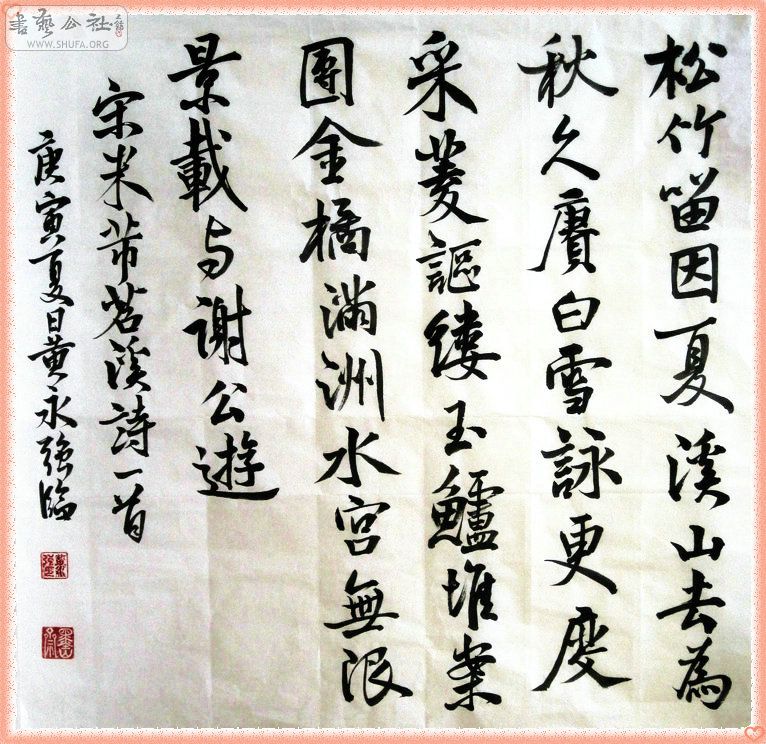 書藝公社
WWW.SHUFA.ORG
松竹留因夏溪山去為
秋久賡白雪詠更度
采菱謳縷玉鱸堆案
團金橘滿洲水宮無限
景載与謝公遊
宋米芾苕溪詩一首
庚寅夏日黄永强臨